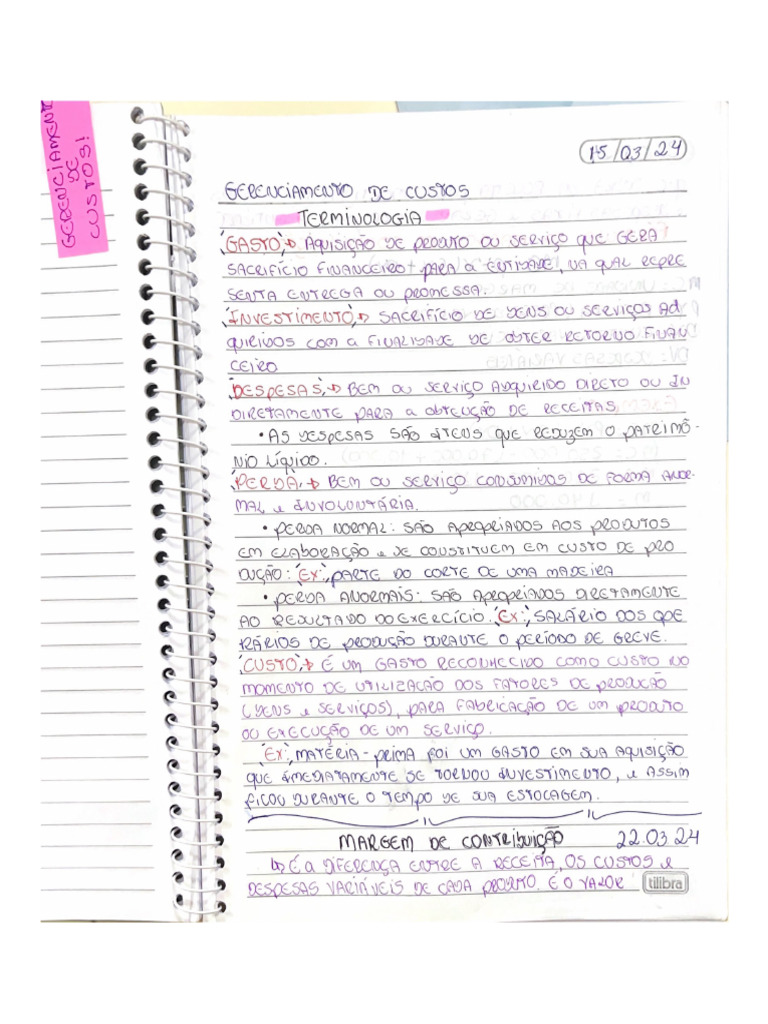 GERENCIAMENTO
DE
CUSTOS!
15/03/24
GERENCIAMENTO DE CUSTOS
TERMINOLOGIA
GASTO → AQUISIÇÃO DE PRODUTO OU SERVIÇO QUE GERA
SACRIFÍCIO FINANCEIRO PARA A ENTIDADE, NA QUAL REPRE
SENTA ENTREGA OU PROMESSA.
INVESTIMENTO → SACRIFÍCIO DE BENS OU SERVIÇOS AD
QUIRIDOS COM A FINALIDADE DE OBTER RETORNO FINAN
CEIRO
DESPESAS → BEM OU SERVIÇO ADQUIRIDO DIRETO OU IN
DIRETAMENTE PARA A OBTENÇÃO DE RECEITAS.
• AS DESPESAS SÃO ITENS QUE REDUZEM O PATRIMÔ-
NIO LÍQUIDO.
PERDA → BEM OU SERVIÇO CONSUMIDOS DE FORMA ANOR
MAL E INVOLONTÁRIA.
• PERDA NORMAL: SÃO APROPRIADOS AOS PRODUTOS
EM ELABORAÇÃO E SE CONSTITUEM EM CUSTO DE PRO
DUÇÃO: EX: PARTE DO CORTE DE UMA MADEIRA
• PERDA ANORMAIS: SÃO APROPRIADOS DIRETAMENTE
AO RESULTADO DO EXERCÍCIO. EX: SALÁRIO DOS OPE
RÁRIOS DE PRODUÇÃO DURANTE O PERÍODO DE GREVE.
CUSTO → É UM GASTO RECONHECIDO COMO CUSTO NO
MOMENTO DE UTILIZAÇÃO DOS FATORES DE PRODUÇÃO
(BENS E SERVIÇOS), PARA FABRICAÇÃO DE UM PRODUTO
OU EXECUÇÃO DE UM SERVIÇO.
EX: MATÉRIA-PRIMA FOI UM GASTO EM SUA AQUISIÇÃO
QUE IMEDIATAMENTE SE TORNOU INVESTIMENTO, E ASSIM
FICOU DURANTE O TEMPO DE SUA ESTOCAGEM.
MARGEM DE CONTRIBUIÇÃO 22.03.24
↳ É A DIFERENÇA ENTRE A RECEITA, OS CUSTOS E
DESPESAS VARIÁVEIS DE CADA PRODUTO. É O VALOR
tilibra